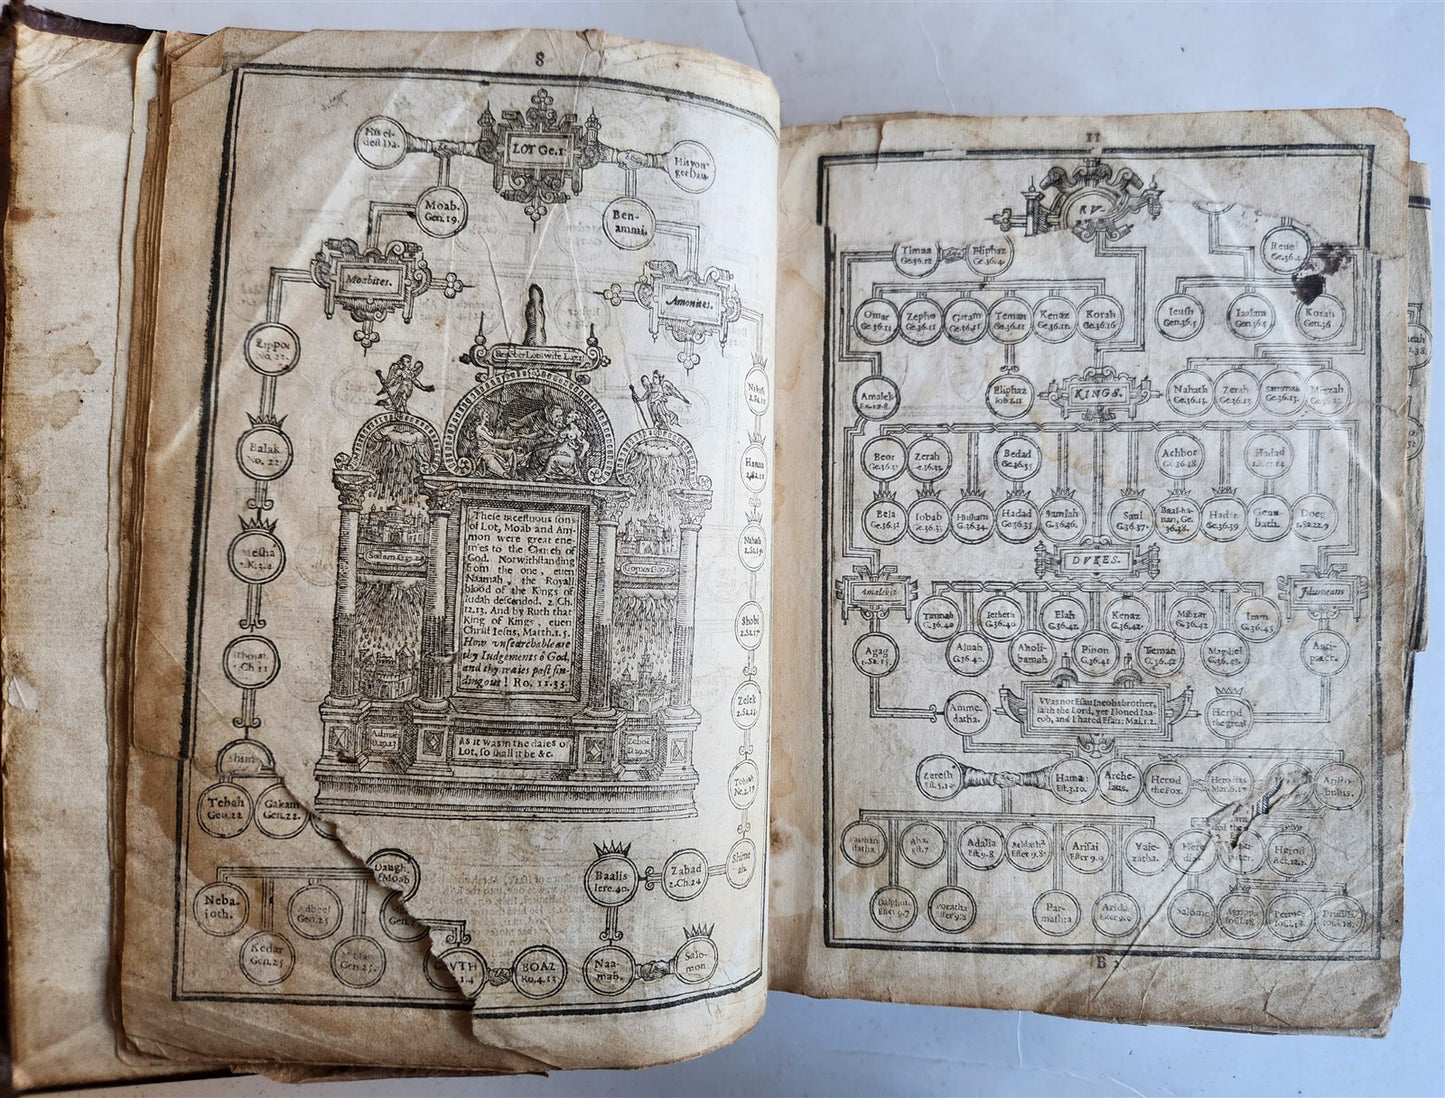 8
His el-
dest Da.
LOT Ge.1
His yon-
ger Dau.
Moab.
Gen.19.
Ben-
ammi.
Moabites.
Amonites.
Zippor
No. 22.
Balak
No. 22
Mesha
2.K.3.4
Nahash
Hanun
2.Sa.10
Nahash
Shobi
2.Sa.17
Zelek
2.Sa.23.
Tobiah
Ne.2.19
Shime-
ath.
Zabad
2.Ch.24
Baalis
Iere.40.
Naa-
mah.
Salo-
mon
Sodom.G.19.24
These incestuous sons
of Lot, Moab and Am-
mon were great ene-
mies to the Church of
God. Notwithstanding
from the one, euen
Naamah, the Royall
blood of the Kings of
Iudah descended. 2. Ch.
12.13. And by Ruth that
King of Kings, euen
Christ Iesus, Matth.1.5.
How vnsearchable are
thy Iudgements ô God,
and thy waies past fin-
ding out! Ro. 11.33.
As it was in the daies of
Lot, so shall it be &c.
Tebah
Gen.22
Gaham
Gen.22.
Daugh.
of Moab
Neba-
joth.
Adbeel
Gen.25
Kedar
Gen.25
Gen.25.
RVTH
1.4
BOAZ
Ru.4.13
11
Timna
Ge.36.12
Eliphaz
Ge.36.4.
Reuel
Ge.36.4
Omar
Ge.36.11
Zepho
Ge.36.11
Gatam
Ge.36.11
Teman
Ge.36.11
Kenaz
Ge.36.11.
Korah
Ge.36.16
Ieush
Gen.36.5
Iaalam
Gen.36.5
Korah
Gen.36
Amalek
Eliphaz
Iob 2.11
KINGS.
Nahath
Ge.36.13.
Zerah
Ge.36.13
Sammah
Ge.36.13.
Mizzah
Ge.36.13
Beor
Ge.36.32
Zerah
Bedad
Ge.36.35
Achbor
Ge.36.38
Hadad
Bela
Ge.36.32
Iobab
Husham
G.36.34.
Hadad
Ge.36.35
Samlah
G.36.36.
Saul.
G.36.37.
Baal-ha-
nan, Ge.
36.38.
Hadar
Ge.36.39
Genu-
bath.
Doeg
1.Sa.22.9
DVKES.
Amalekit
Idumeans
Timnah
G.36.40
Ietheth
G.36.40
Elah
G.36.41.
Kenaz
G.36.42.
Mibzar
G.36.42
Iram
G.36.43
Agag
1.Sa.15.
Aluah
G.36.40.
Aholi-
bamah
Pinon
G.36.41
Teman
G.36.42
Magdiel
G.36.43.
Anti-
pater.
Amme-
datha.
VVas not Esau Iacobs brother,
saith the Lord, yet I loued Ia-
cob, and I hated Esau: Mal.1.2.
Herod
the great
Zeresh
Est.5.14
Hama
Est.3.10.
Arche-
laus.
Herod
the Fox.
Herodias
Mar.6.17
Aristo-
bulus.
Parshan
datha.
Adalia
Est.9.8
Aridatha
Ester 9.8.
Arisai
Ester 9.9
Vaie-
zatha.
Herod
Act.12.1.
Dalphon
Ester 9.7
Poratha
Ester 9.8
Par-
mashta
Arida
Ester 9.9
Salome
B